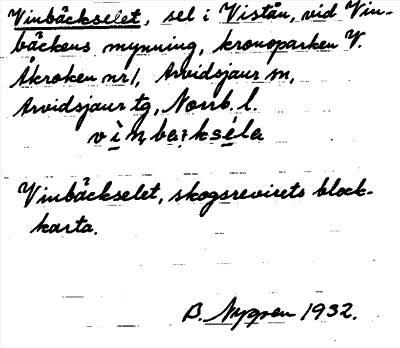 Vinbäckselet, sel i Vistån, vid Vin-
bäckens mynning, kronoparken V.
Åkroken nr 1, Arvidsjaur sn,
Arvidsjaur tg, Norrb. l.
vìnbakséla
Vinbäckselet, skogsrevirets block-
karta.
B. Nygren 1932.